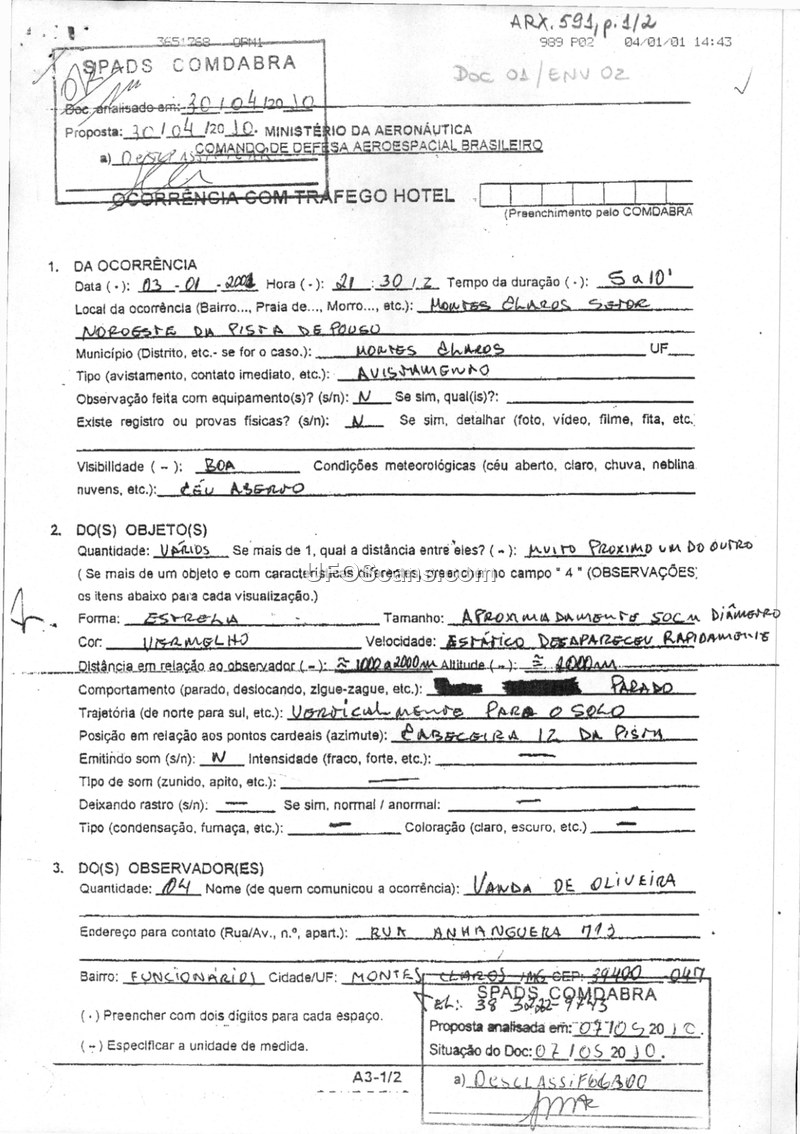 ARX. 591, p. 1/2
3651268 989 P02 04/01/01 14:43
SPADS COMDABRA
DOC 01/ENV 02
Doc. analisado em: 30/04/2010
Proposta: 30/04/2010. MINISTÉRIO DA AERONÁUTICA
COMANDO DE DEFESA AEROESPACIAL BRASILEIRO
a)
OCORRÊNCIA COM TRÁFEGO HOTEL
(Preenchimento pelo COMDABRA
1. DA OCORRÊNCIA
Data ( · ): 03 - 01 - 2001 Hora ( · ): 21 : 30 / Z Tempo da duração ( · ): 5 a 10'
Local da ocorrência (Bairro..., Praia de..., Morro..., etc.): MONTES CLAROS SETOR
NOROESTE DA PISTA DE POUSO
Município (Distrito, etc.- se for o caso.): MONTES CLAROS UF
Tipo (avistamento, contato imediato, etc.): AVISTAMENTO
Observação feita com equipamento(s)? (s/n): N Se sim, qual(is)?:
Existe registro ou provas físicas? (s/n): N Se sim, detalhar (foto, vídeo, filme, fita, etc.
Visibilidade ( ~ ): BOA Condições meteorológicas (céu aberto, claro, chuva, neblina
nuvens, etc.): CÉU ABERTO
2. DO(S) OBJETO(S)
Quantidade: VÁRIOS Se mais de 1, qual a distância entre eles? ( ~ ): MUITO PROXIMO UM DO OUTRO
( Se mais de um objeto e com características diferentes, preencher no campo " 4 " (OBSERVAÇÕES)
UFOScans.com
os itens abaixo para cada visualização.)
Forma: ESTRELA Tamanho: APROXIMADAMENTE 50CM DIÂMETRO
Cor: VERMELHO Velocidade: ESTÁTICO DESAPARECEU RAPIDAMENTE
Distância em relação ao observador ( ~ ): ≅ 1000 a 2000m Altitude ( ~ ): ≅ 1000m
Comportamento (parado, deslocando, zigue-zague, etc.): PARADO
Trajetória (de norte para sul, etc.): VERTICALMENTE PARA O SOLO
Posição em relação aos pontos cardeais (azimute): CABECEIRA 12 DA PISTA
Emitindo som (s/n): N Intensidade (fraco, forte, etc.): —
Tipo de som (zunido, apito, etc.): —
Deixando rastro (s/n): — Se sim, normal / anormal: —
Tipo (condensação, fumaça, etc.): — Coloração (claro, escuro, etc.) —
3. DO(S) OBSERVADOR(ES)
Quantidade: 04 Nome (de quem comunicou a ocorrência): VANDA DE OLIVEIRA
Endereço para contato (Rua/Av., n.º, apart.): RUA ANHANGUERA 713
Bairro: FUNCIONÁRIOS Cidade/UF: MONTES CLAROS /MG CEP: 39400-047
SPADS COMDABRA
TEL: 38 3222-9743
( · ) Preencher com dois dígitos para cada espaço.
Proposta analisada em: 07/05 2010.
( ~ ) Especificar a unidade de medida.
Situação do Doc: 07/05 2010.
A3-1/2
a) DESCLASSIFICADO